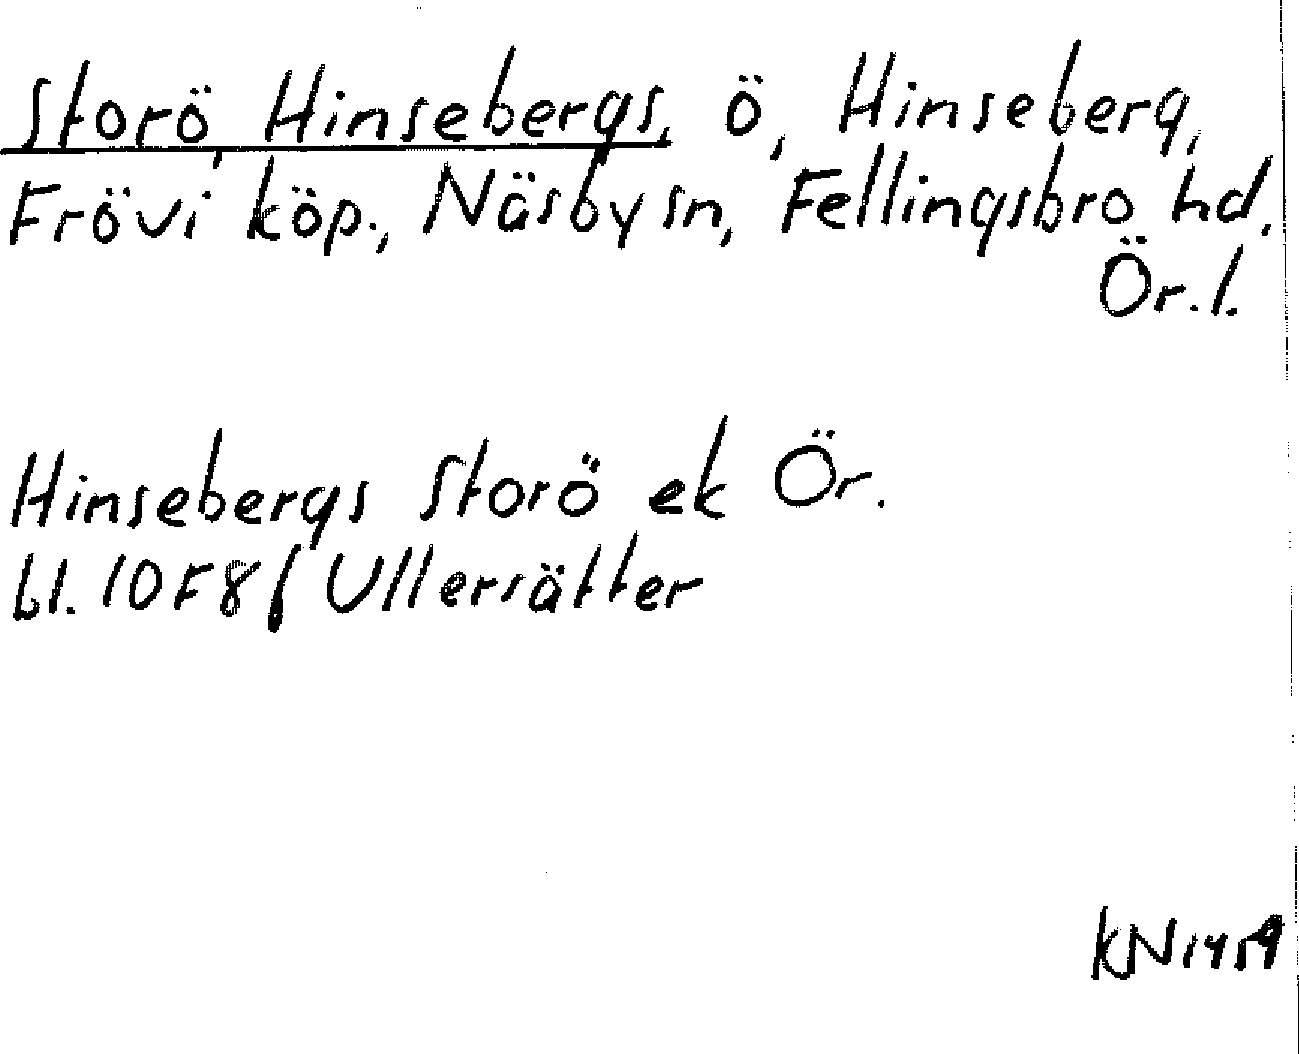 Storö, Hinsebergs, ö, Hinseberg,
Frövi köp., Näsby sn, Fellingsbro hd.
Ör. l.
Hinsebergs Storö ek Ör.
bl. 10F8f Ullersätter